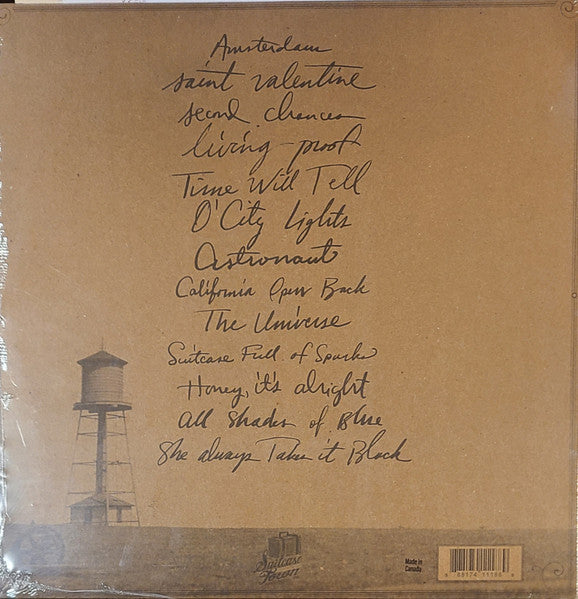 Amsterdam
saint valentine
second chances
living proof
Time Will Tell
O' City Lights
Astronaut
California Open Back
The Universe
Suitcase Full of Sparks
Honey, it's alright
all shades of Blue
She always Takes it Black
Suitcase
Town
Made in
Canada